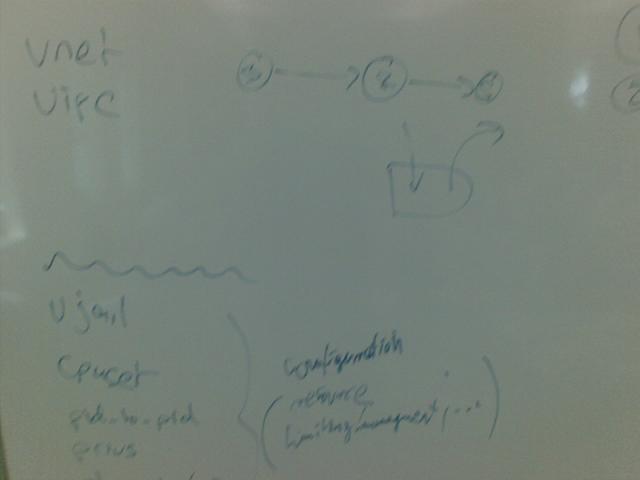 vnet
vipc
2
vjail
cpuset
pid-to-pid
privs
configuration
(resource
limiting/managment, ...)